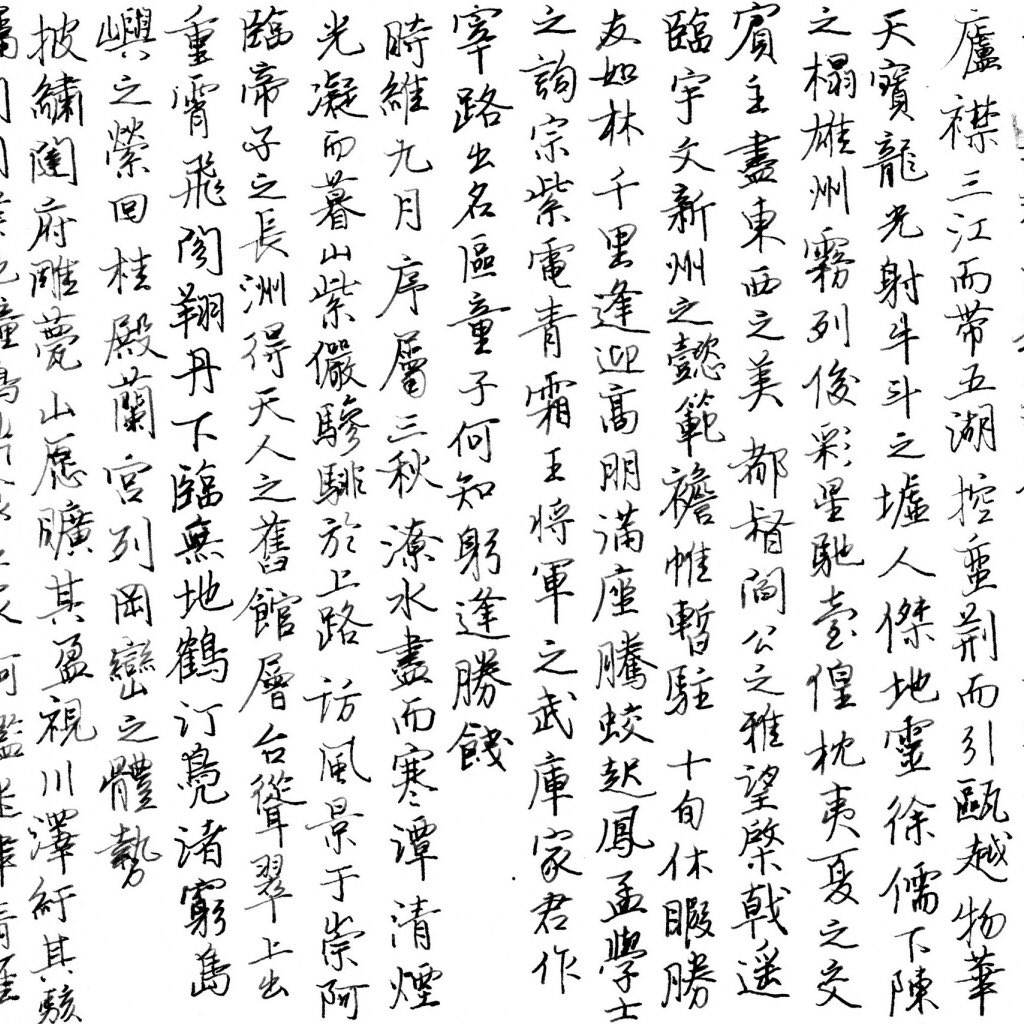 廬襟三江而帶五湖控蛮荊而引甌越物華
天寶龍光射牛斗之墟人傑地靈徐儒下陳
之榻雄州霧列俊彩星馳臺隍枕夷夏之交
賓主盡東西之美 都督閻公之雅望棨戟遥
臨宇文新州之懿範襜帷暫駐 十旬休暇勝
友如林千里逢迎高朋满座騰蛟起鳳孟學士
之詞宗紫電青霜王将軍之武庫家君作
宰路出名區童子何知躬逢勝餞
時維九月序屬三秋潦水盡而寒潭清煙
光凝而暮山紫儼驂騑於上路訪風景于崇阿
臨帝子之長洲得天人之舊館層台聳翠上出
重霄飛閣翔丹下臨無地鶴汀鳧渚窮島
嶼之縈回桂殿蘭宮列岡巒之體勢
披繡闥府雕甍山愿曠其盈視川澤紆其駭